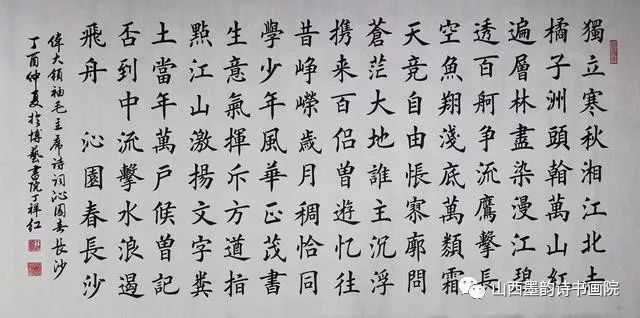 獨立寒秋湘江北去
橘子洲頭翰萬山紅
遍層林盡染漫江碧
透百舸争流鷹擊長
空魚翔淺底萬類霜
天竞自由悵寥廓問
蒼茫大地誰主沉浮
携来百侣曾遊忆往
昔峥嵘歲月稠恰同
學少年風華正茂書
生意氣揮斥方道指
點江山激揚文字糞
土當年萬户侯曾記
否到中流擊水浪遏
飛舟 沁園春長沙
偉大領袖毛主席诗词沁園春長沙
丁酉仲夏於博藝書院丁祥红
山西墨韵诗书画院